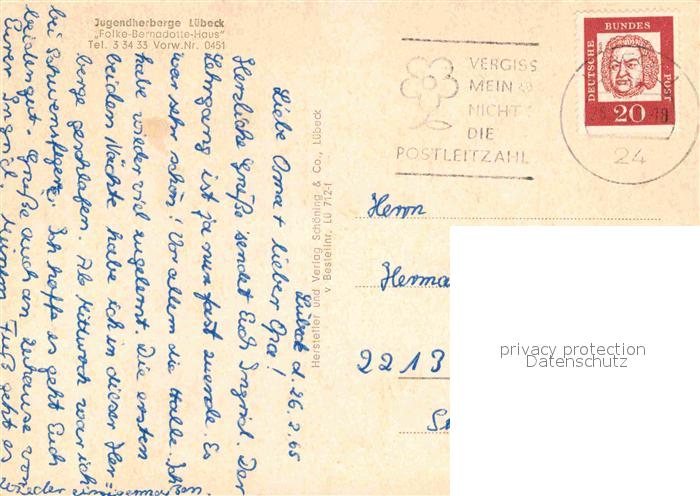 Jugendherberge Lübeck
„Folke-Bernadotte-Haus"
Tel. 3 34 33 Vorw.Nr. 0451
Lübeck d. 26.2.65
Liebe Oma + lieber Opa!
Herzliche Grüße sendet Euch Ingrid. Der
Lehrgang ist ja nun fast zuende. Es
war sehr schön! Vor allem die Halle. Ich
habe wieder viel zugelernt. Die ersten
beiden Nächte habe ich in dieser Her=
berge geschlafen. Ab Mittwoch war ich
bei Ich hoffe es geht Euch
beiden gut. Grüße auch an zuhause von
Eurer Ingrid. Fuß geht es
wieder einigermaßen.
Hersteller und Verlag Schöning & Co., Lübeck
v Bestellnr. LÜ 712-f
VERGISS
MEIN
NICHT
DIE
POSTLEITZAHL
DEUTSCHE BUNDES POST
20
24
Herrn
Herma
2213
privacy protection
Datenschutz